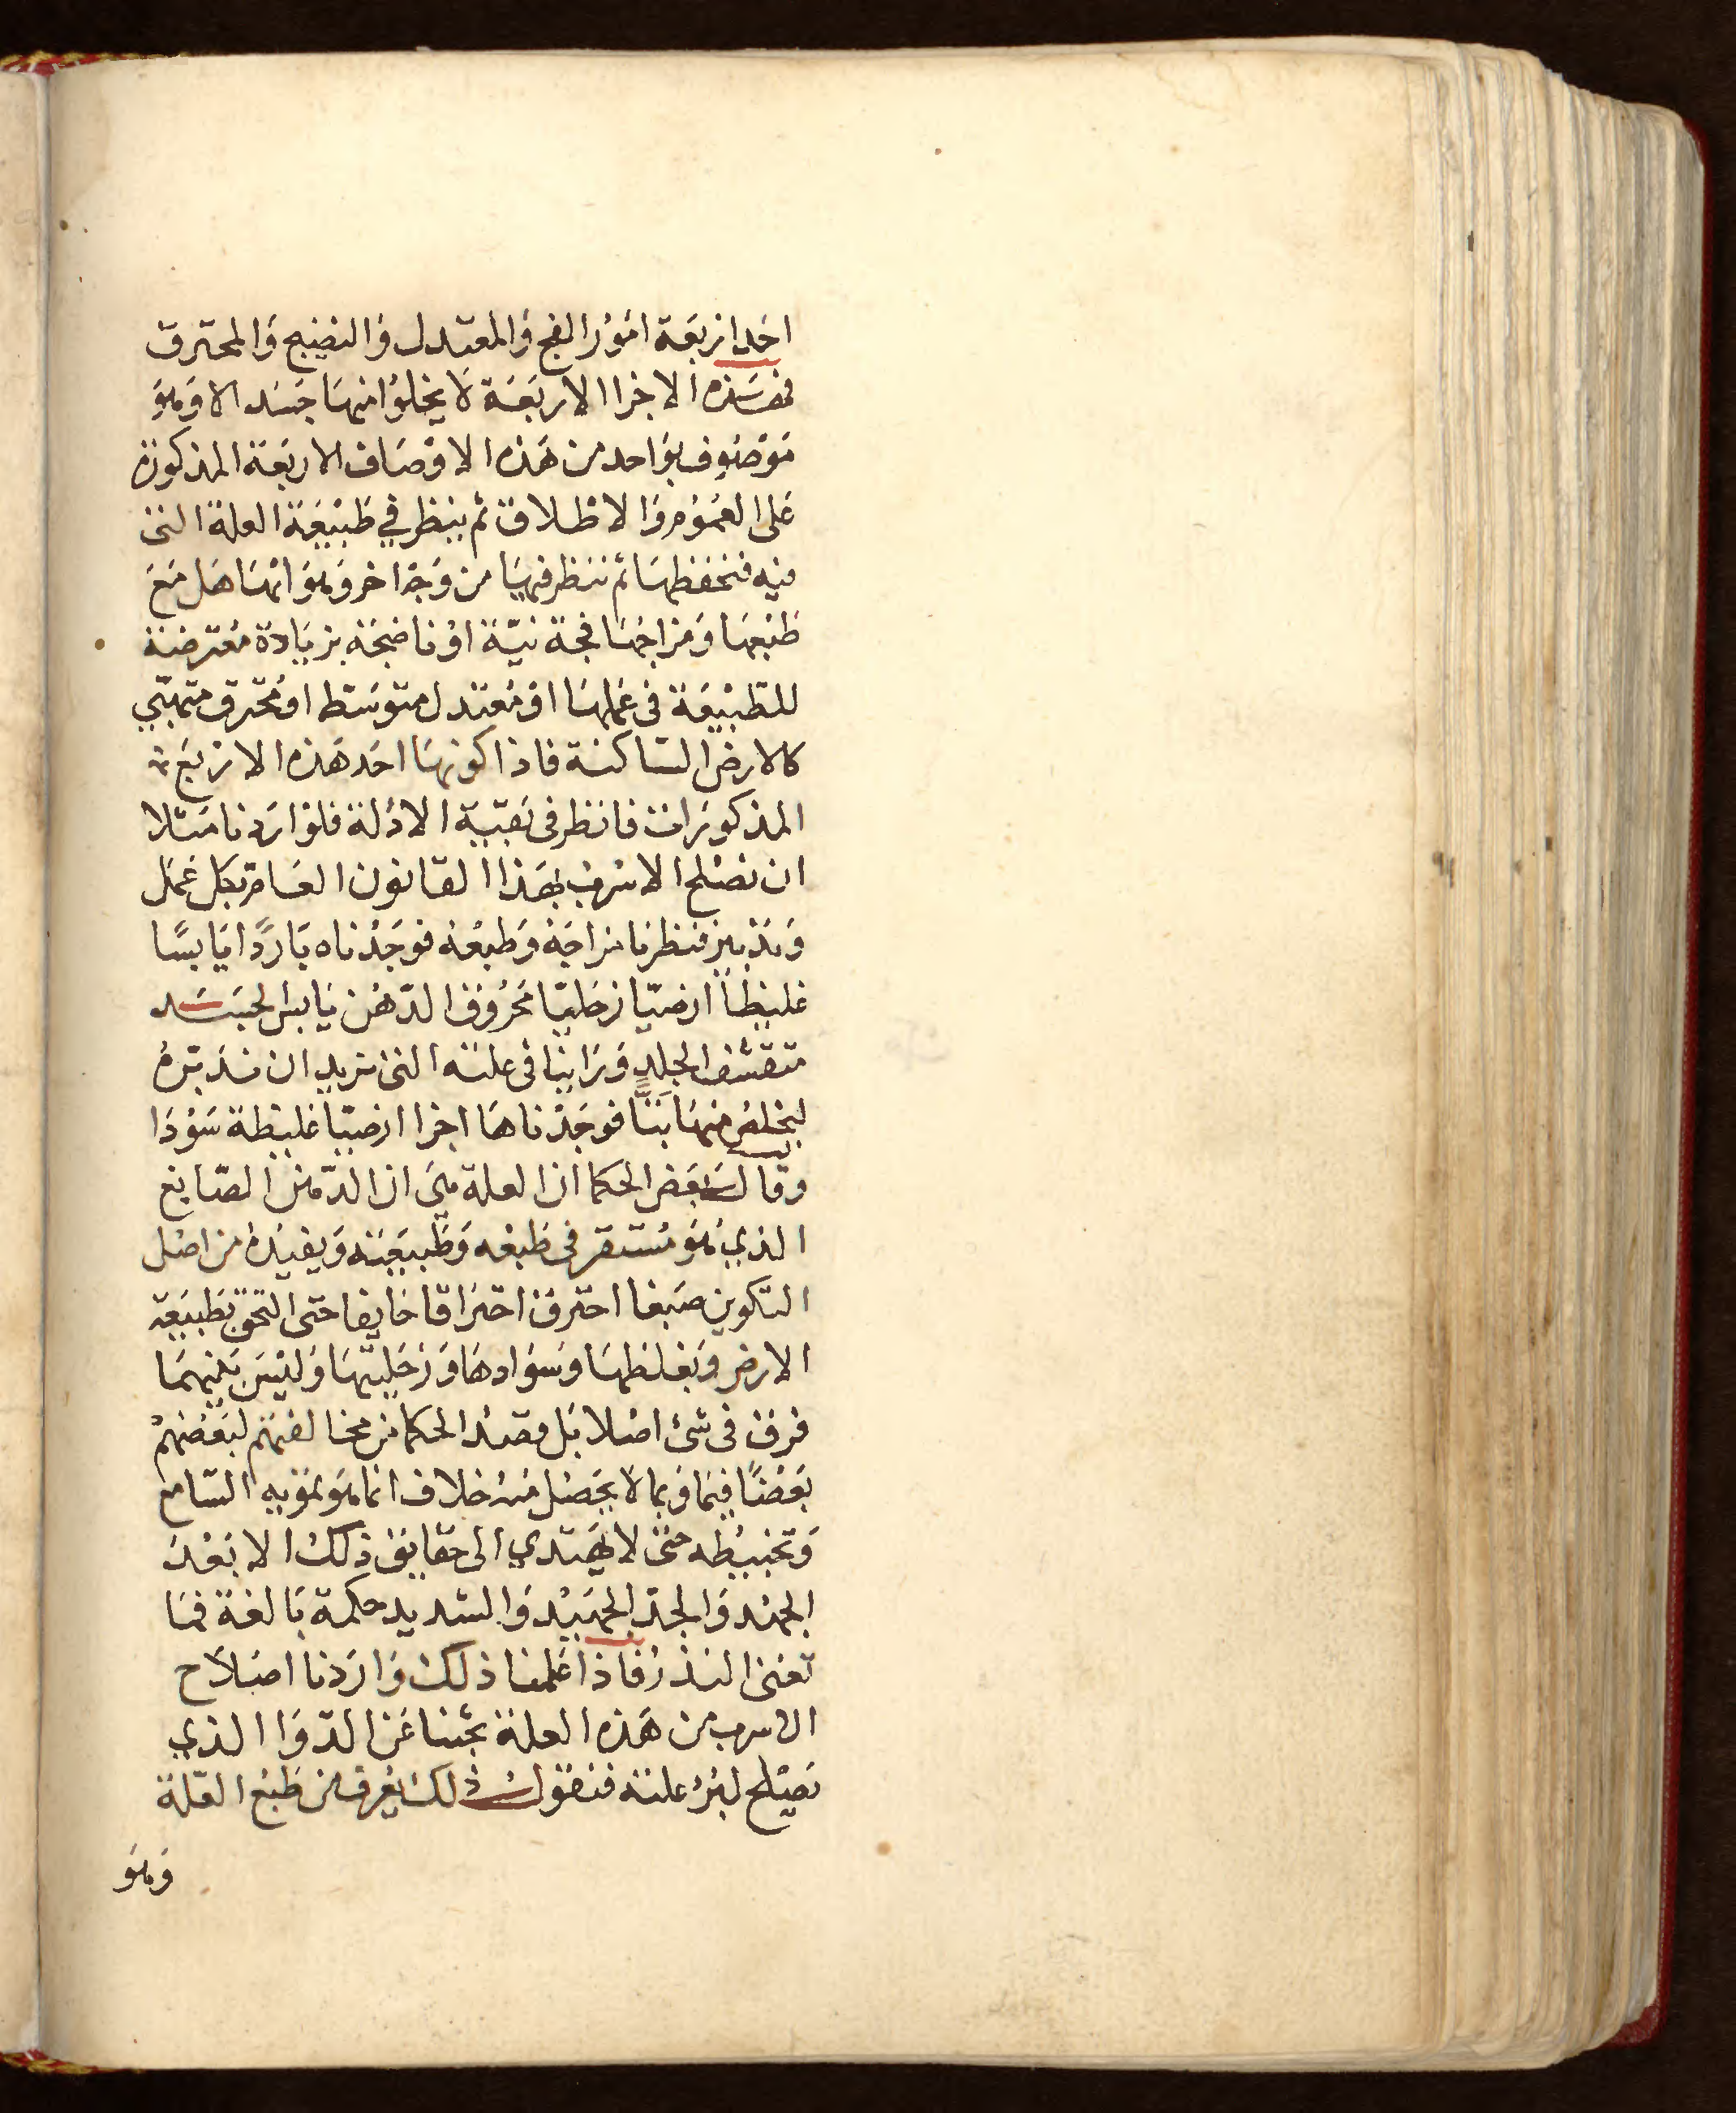 احد اربعة امور الفج والمعتدل والنضيج والمحترق
فهذه الاجزا الاربعة لا يخلوا منها جسد الا وهو
موصوف بواحد من هذه الاوصاف الاربعة المذكورة
على العموم والاطلاق ثم ينظر في طبيعة العلة التى
فيه فنحفظها ثم ننظر فيها من وجه اخر وهو انها هل مع
طبعها ومزاجها فجة نيّة او ناضجة بزيادة معترضة
للطبيعة فى عملها او معتدل متوسط او محترق متهبّي
كالارض الساكنة فاذا كونها احد هذه الاربع
المذكورات فانظر فى بقية الادلة فلو اردنا مثلا
ان نصلح الاسرب بهذا القانون العام بكل عمل
وتدبير فنظرنا مزاجه وطبعه فوجدناه باردًا يابسًا
غليظاً ارضيّا زحليّا محروق الدّهن يابس الجسد
متقشف الجلد وراينا فى علته التى نريد ان ندبّره
ليخلص منها بتًّا فوجدناها اجزا ارضيّا غليظة سودا
وقال بعض الحكما ان العلة هى ان الدّهن الصّابغ
الذي هو مستقر فى طبعه وطبيعته ويفيده من اصل
التكوين صبغا احترق احتراقا خايفا حتى التحق بطبيعة
الارض وبغلظها وسوادها وزحليّتها وليس بينهما
فرق فى شئ اصلا بل قصد الحكما من مخالفتهم لبعضهم
بعضًا فيما وبما لا يحصل منه خلاف انما هو تمويه السّامع
وتخبيطه حتى لا يهتدي الى حقايق ذلك الا بعد
الجهد والجدّ الجهيد والشديد حكمة بالغة فما
تغنى النذر فاذا علمنا ذلك واردنا اصلاح
الاسرب من هذه العلة بحثنا عن الدّوا الذي
يصلح لبرء علته فنقول ذلك يعرف من طبع العلة
وهو